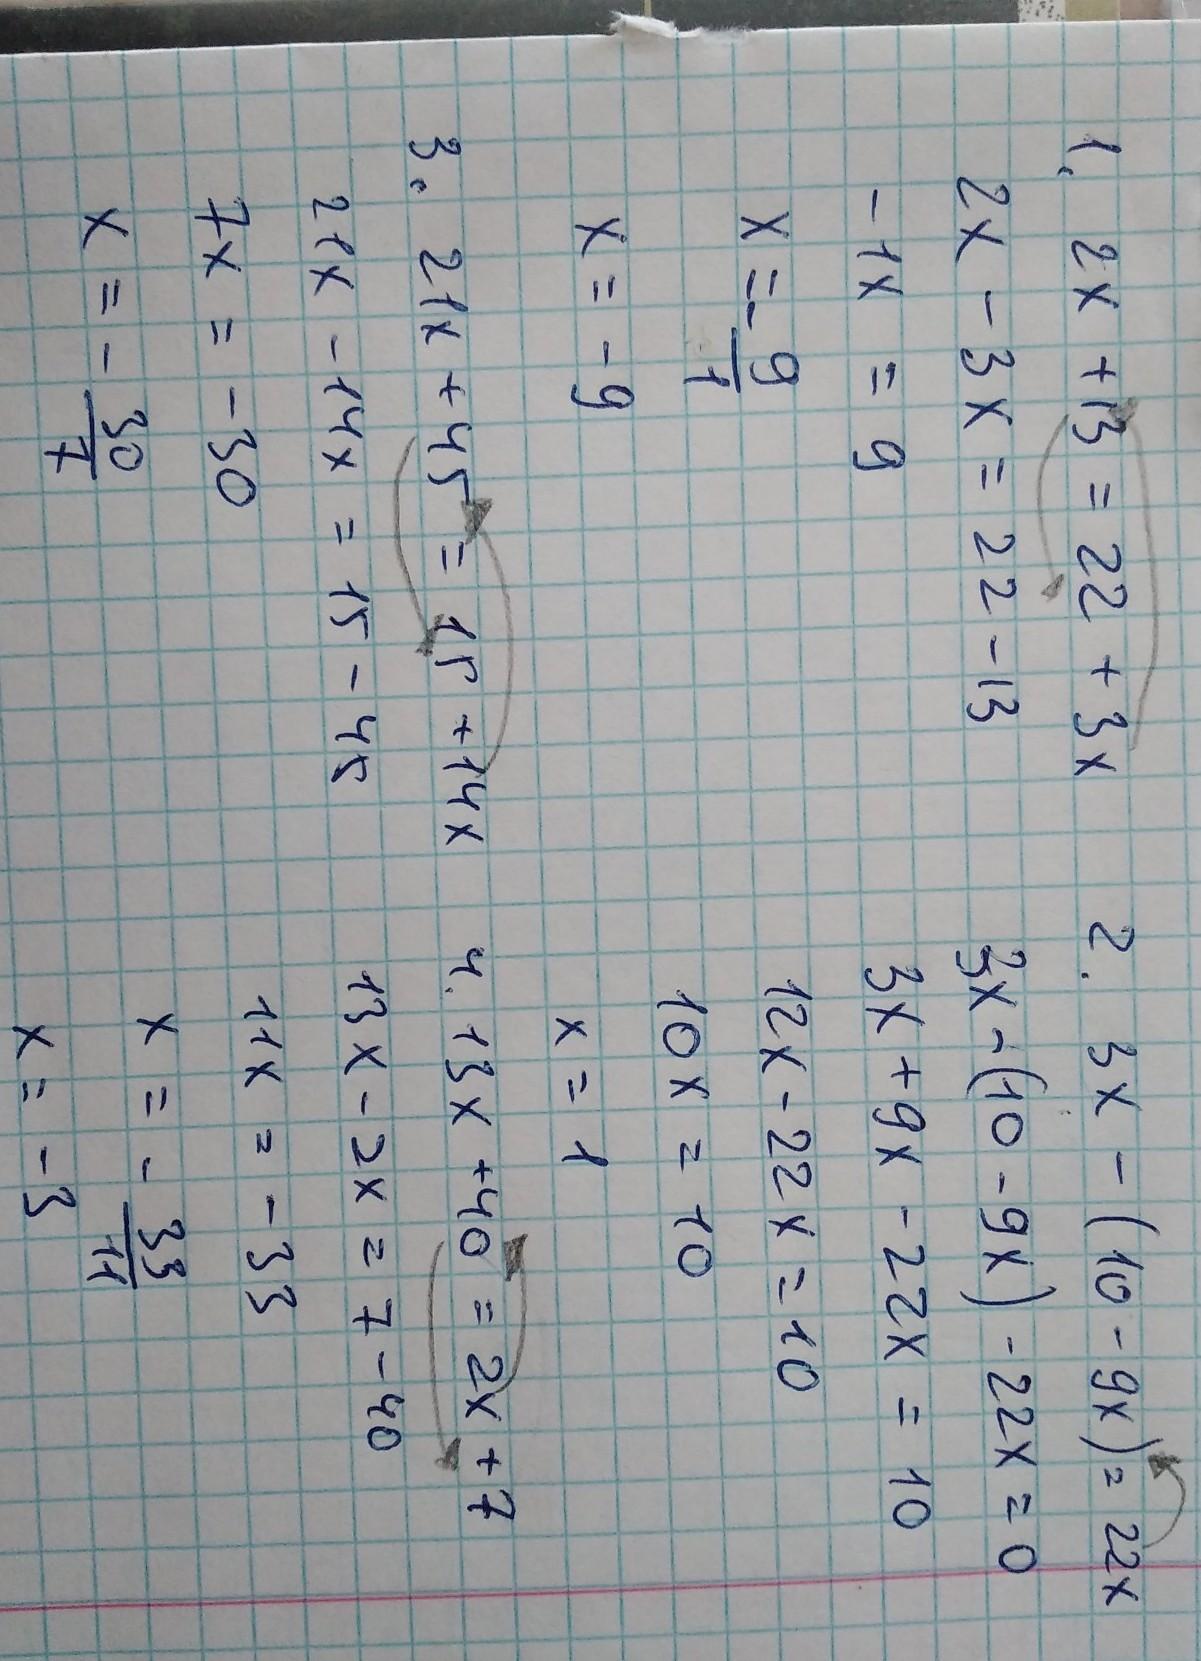 1. 2x + 13 = 22 + 3x
2x - 3x = 22 - 13
-1x = 9
x = - 9/1
x = -9
2. 3x - (10 - 9x) = 22x
3x - (10 - 9x) - 22x = 0
3x + 9x - 22x = 10
12x - 22x = 10
10x = 10
x = 1
3. 21x + 45 = 15 + 14x
21x - 14x = 15 - 45
7x = -30
x = - 30/7
4. 13x + 40 = 2x + 7
13x - 2x = 7 - 40
11x = -33
x = - 33/11
x = -3